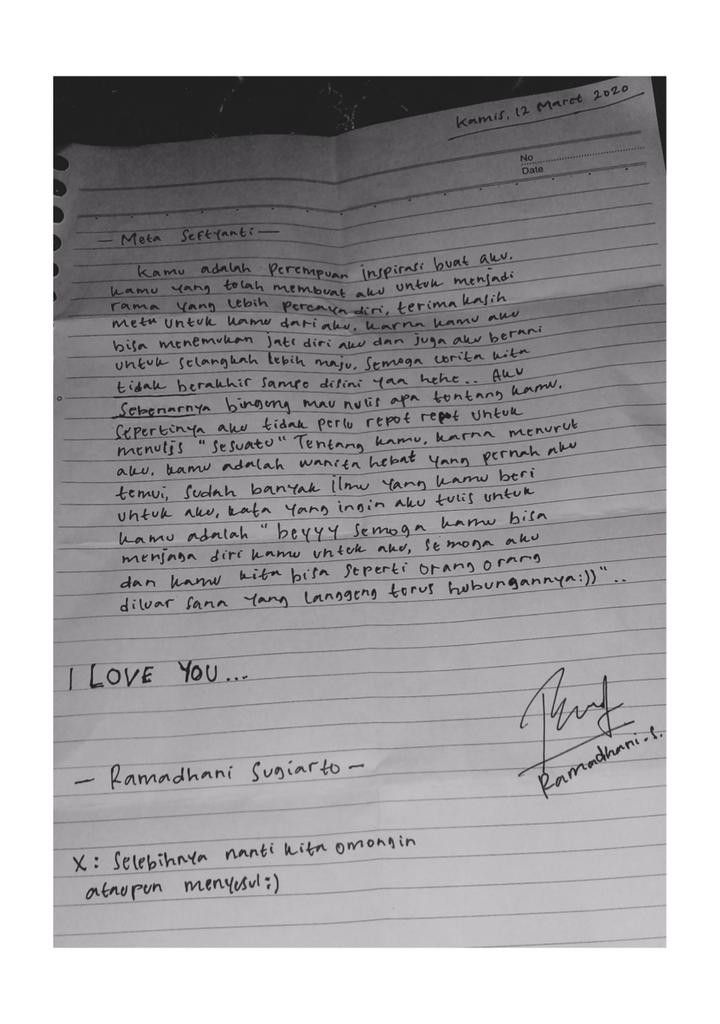 Kamis, 12 Maret 2020
No
Date
— Meta Seftyanti —
Kamu adalah perempuan inspirasi buat aku.
kamu yang telah membuat aku untuk menjadi
rama yang lebih percaya diri, terima kasih
meta untuk kamu dari aku, karna kamu aku
bisa menemukan jati diri aku dan juga aku berani
untuk selangkah lebih maju. Semoga cerita kita
tidak berakhir sampe disini yaa hehe.. Aku
Sebenarnya bingung mau nulis apa tentang kamu.
Sepertinya aku tidak perlu repot repot untuk
menulis "sesuatu" Tentang kamu, karna menurut
aku, kamu adalah wanita hebat yang pernah aku
temui, sudah banyak ilmu yang kamu beri
untuk aku, kata yang ingin aku tulis untuk
kamu adalah "beyyy semoga kamu bisa
menjaga diri kamu untuk aku, semoga aku
dan kamu kita bisa seperti orang orang
diluar sana yang langgeng terus hubungannya:))"..
I LOVE YOU...
Ramadhani.S.
— Ramadhani Sugiarto —
X: Selebihnya nanti kita omongin
ataupun menyusul:)